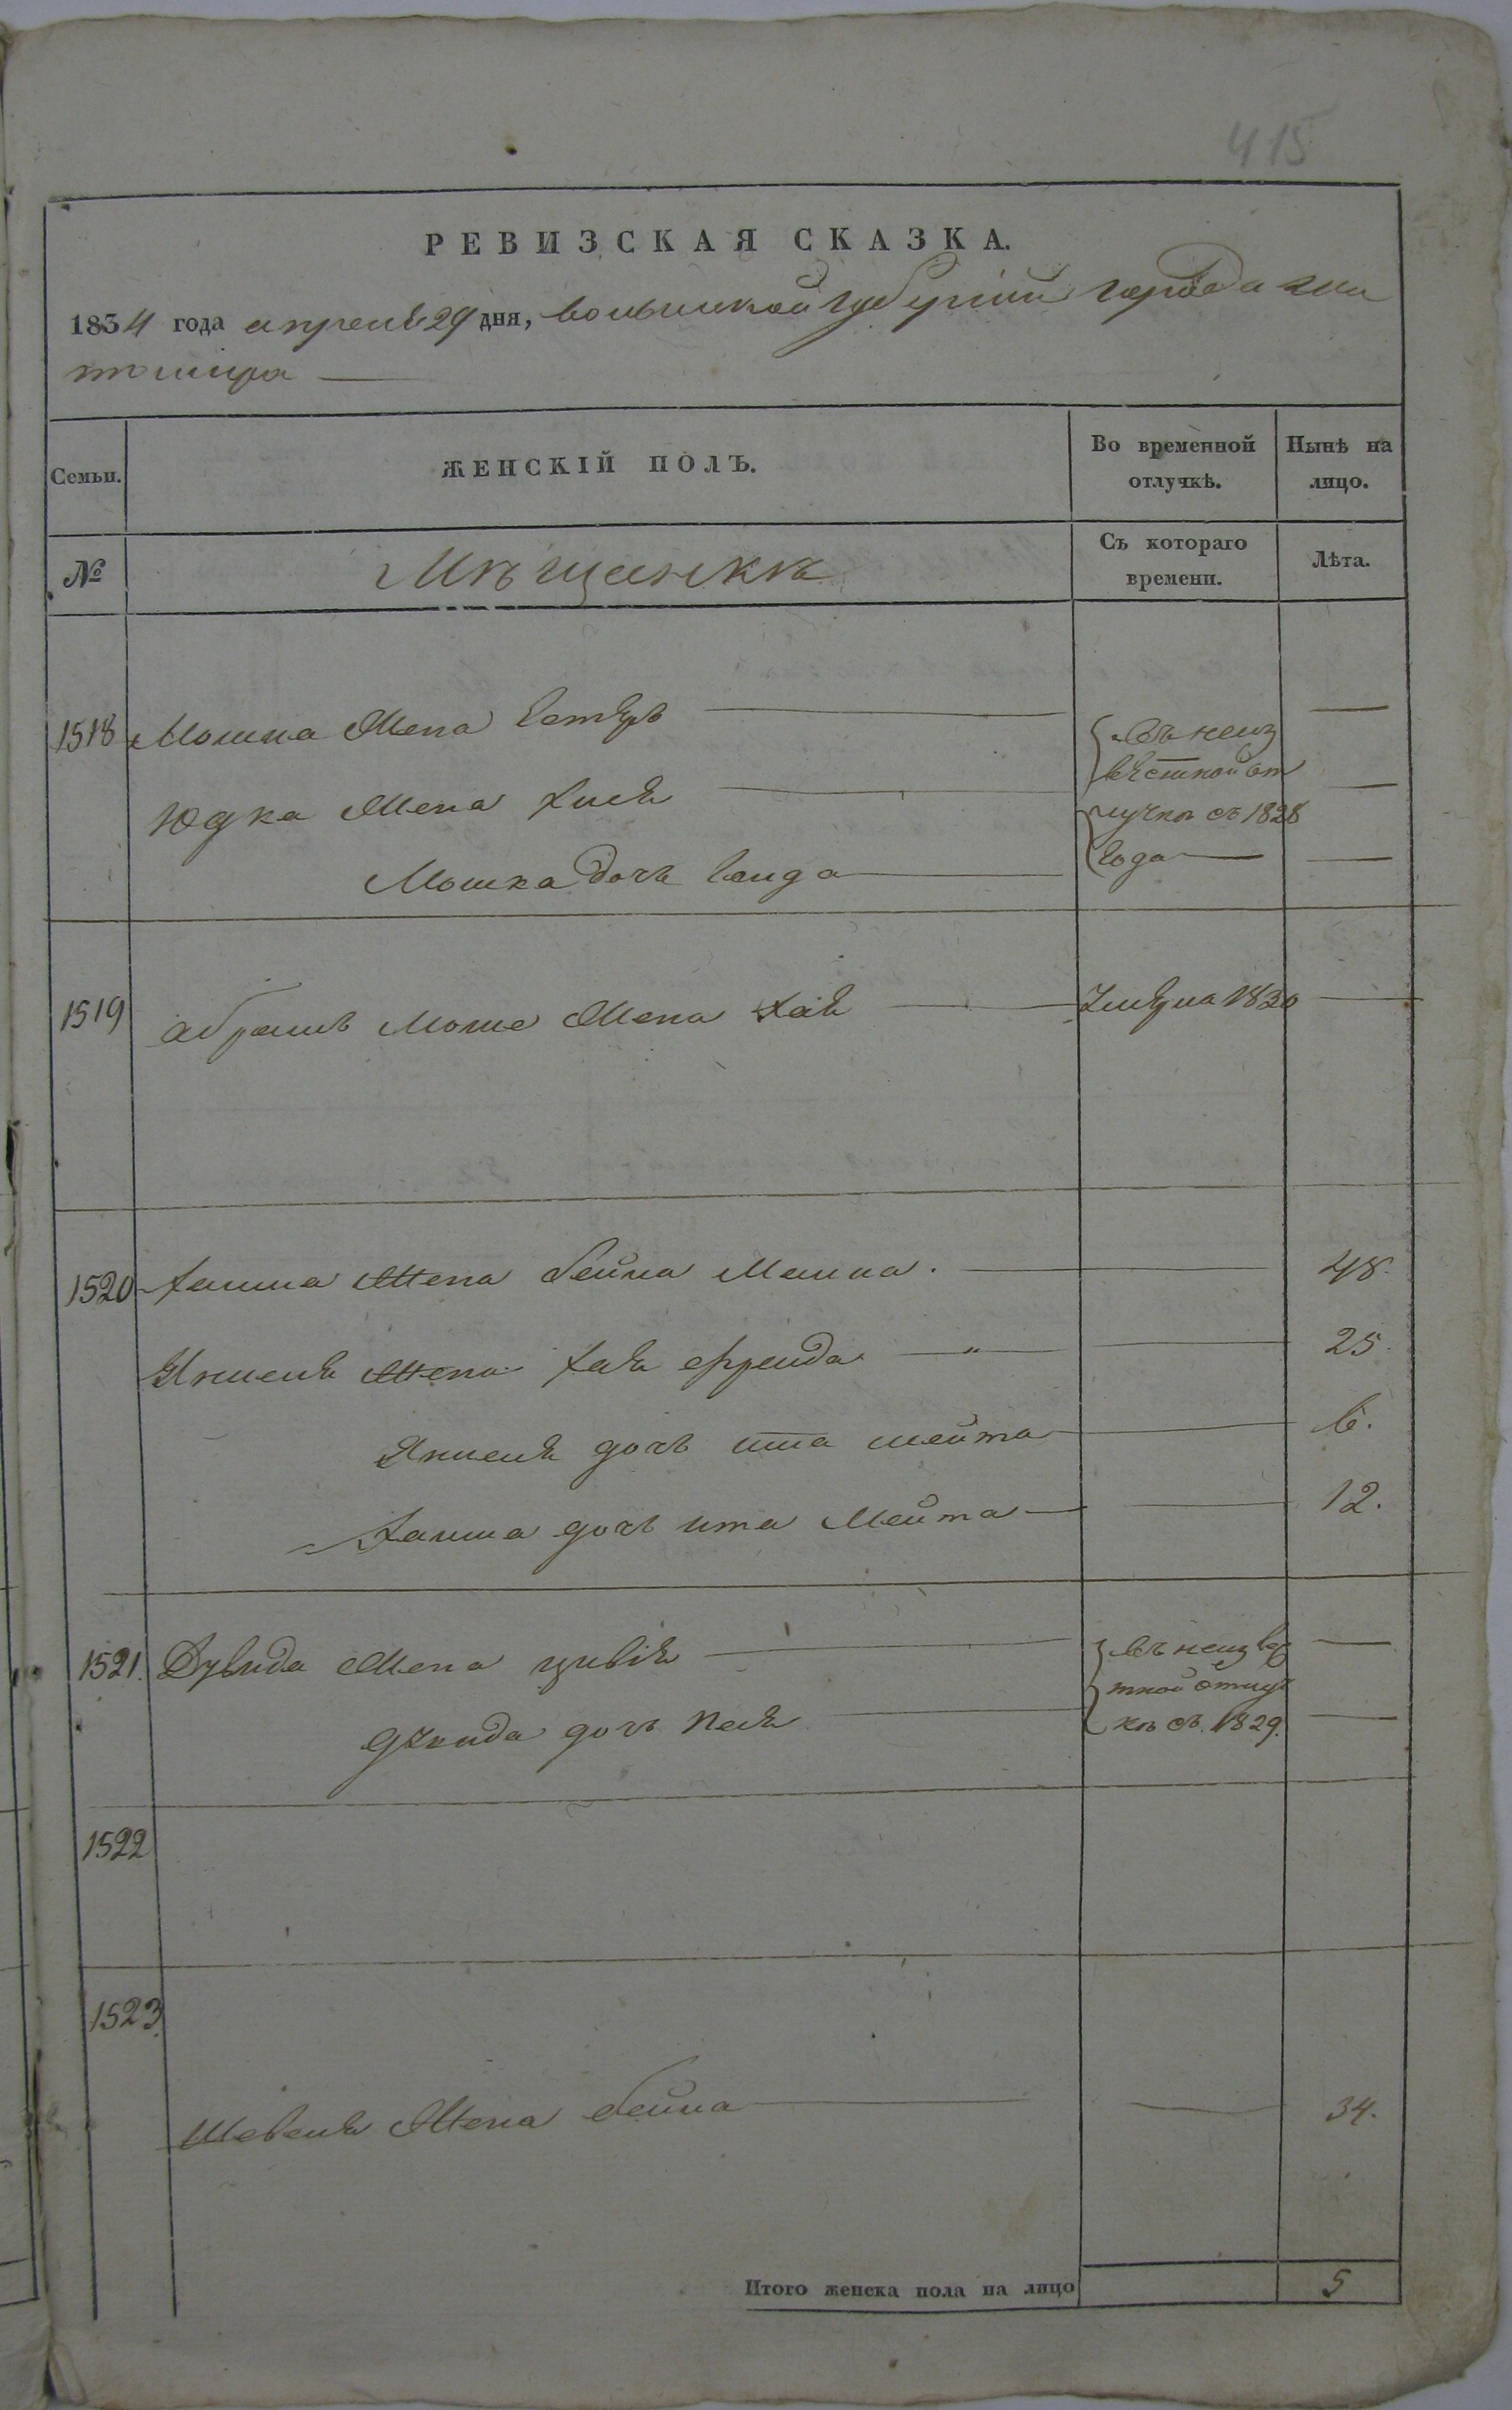 415
РЕВИЗСКАЯ СКАЗКА.
1834 года апреля 29 дня, волынской губернии города жи
томира
Семьи. ЖЕНСКІЙ ПОЛЪ. Во временной отлучкѣ. Нынѣ на лицо.
№ Мѣщанкѣ Съ котораго времени. Лѣта.
1518 Мошка Жена Естеръ
въ неиз
вѣстной от
Юдка Жена Хися
лучкѣ съ 1828
Мошка дочъ
года
1519 абрамъ Моше Жена Хая 1830
1520 Хаима Жена бейла Малка. 48.
Янкеля Жена Хая фрейда 25.
Янкеля дочъ ита шейта 6.
Хаима дочъ ита Мейта 12.
1521. Дувида Жена цивія
въ неизвѣс
тной отлуч
дувида дочъ Песя
кѣ съ 1829.
1522
1523
Жена бейла 34.
Итого женска пола на лицо 5